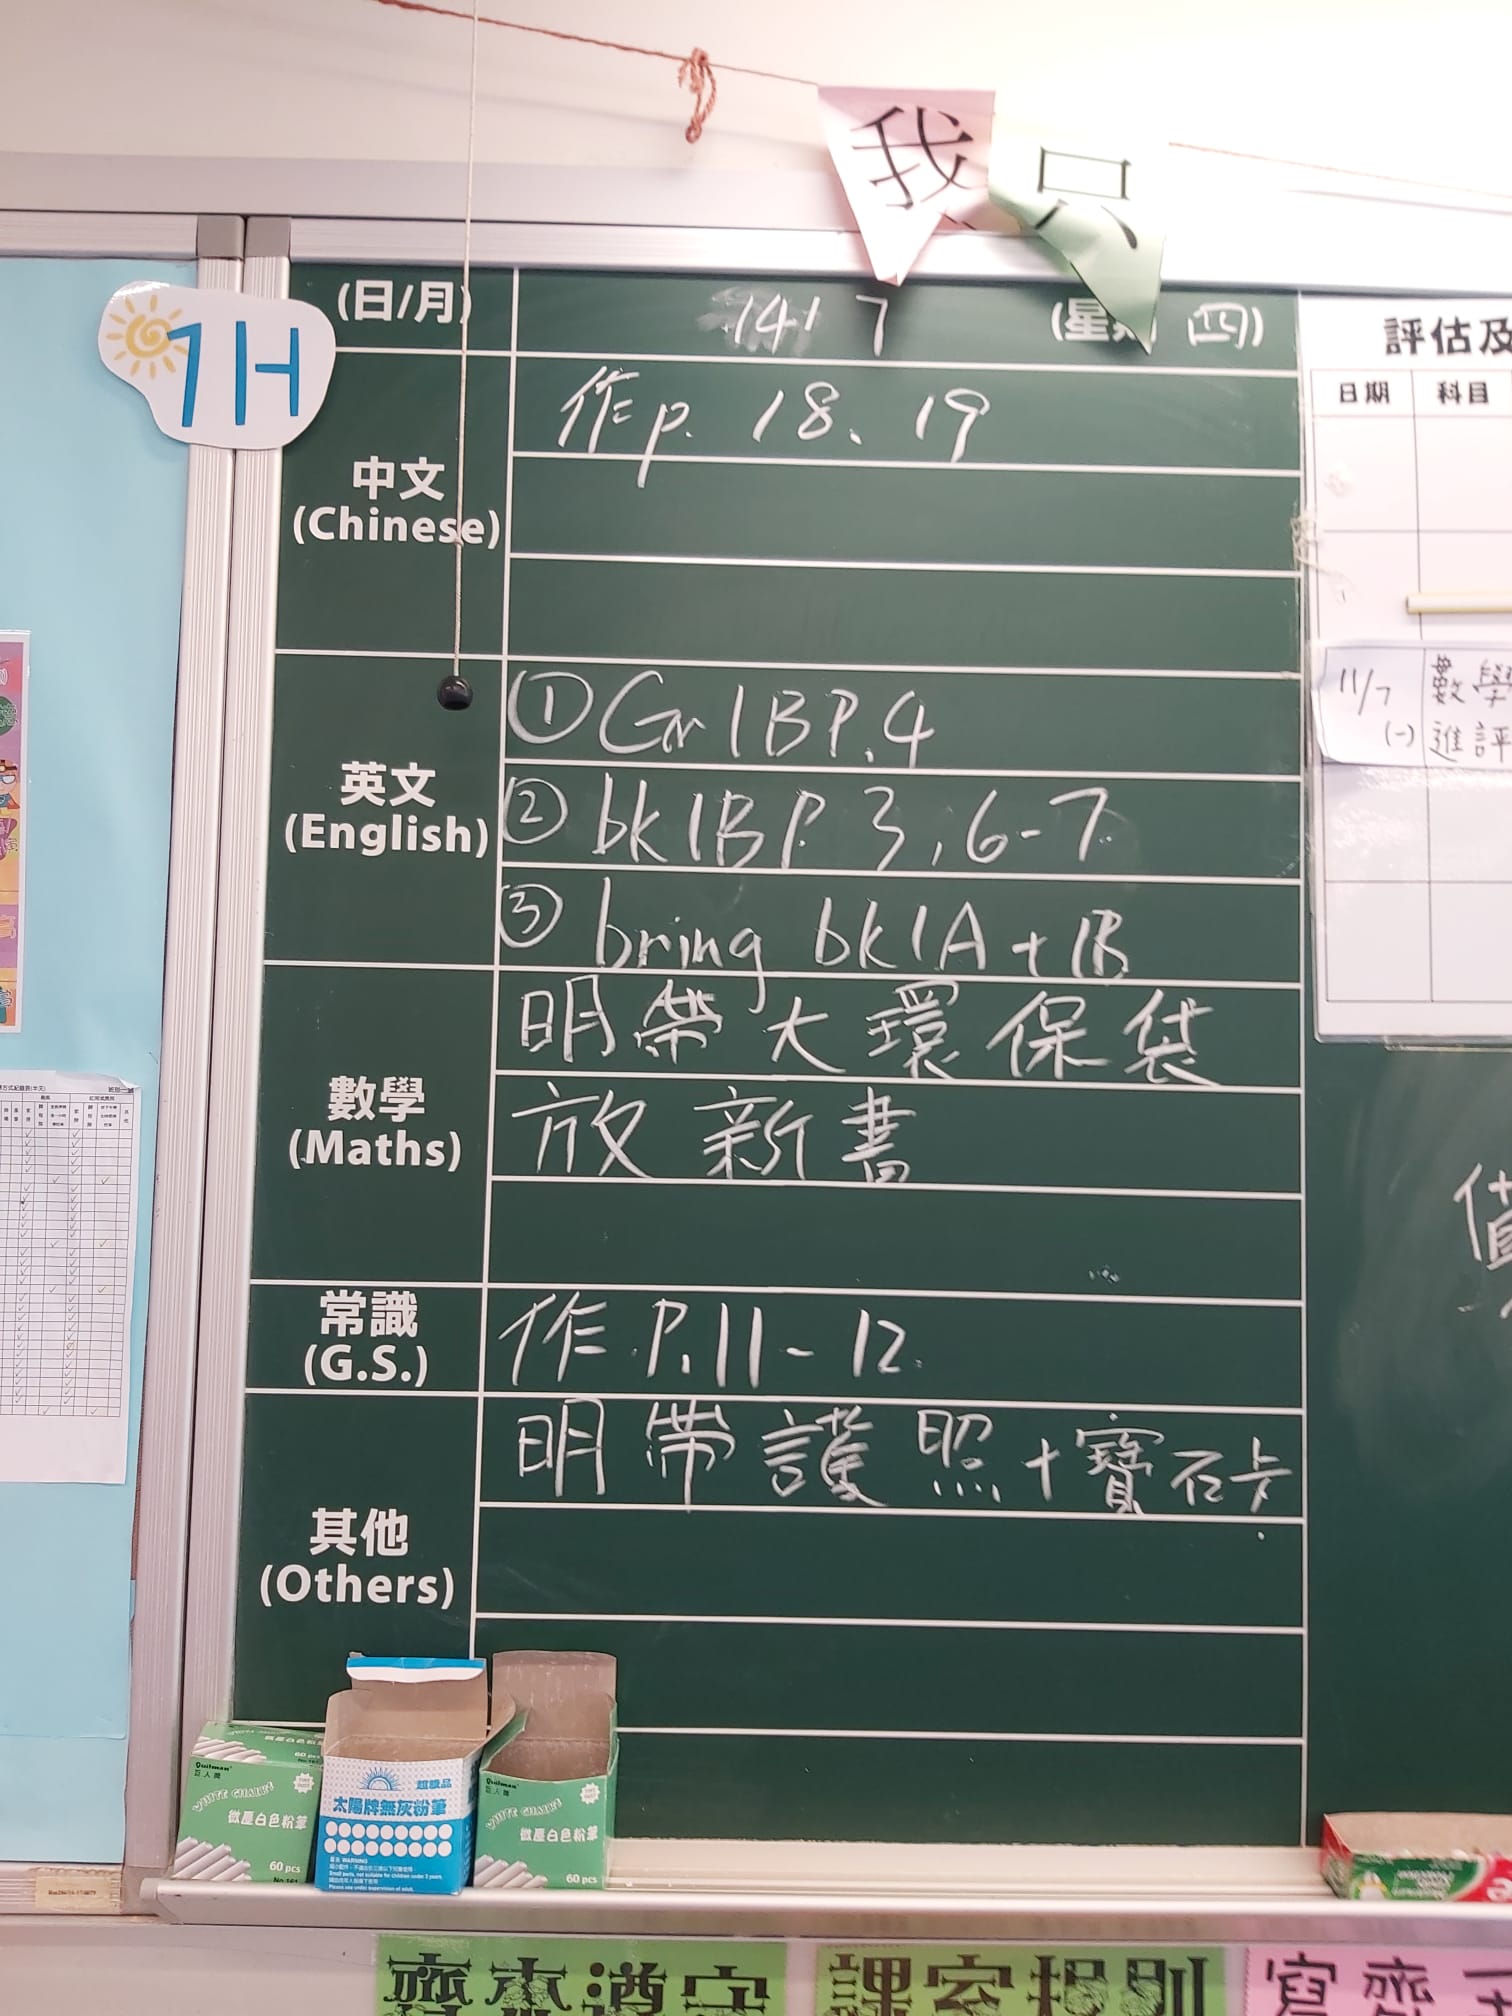 我只
1H
(日/月) 14/7 (星期四)
中文
(Chinese)
作p. 18、19
英文
(English)
① Gr 1B P.4
② bk 1B P. 3, 6-7
③ bring bk 1A + 1B
數學
(Maths)
明帶大環保袋
放新書
常識
(G.S.)
作 P.11-12
其他
(Others)
明帶護照+寶石卡
評估及
日期 科目
11/7 數學
(一) 進評
借
Quilman
巨人牌
WHITE CHALKS
微塵白色粉筆
60 pcs
超級品
太陽牌無灰粉筆
WARNING
Quilman
巨人牌
WHITE CHALKS
微塵白色粉筆
60 pcs
齊來遵守
課室規則